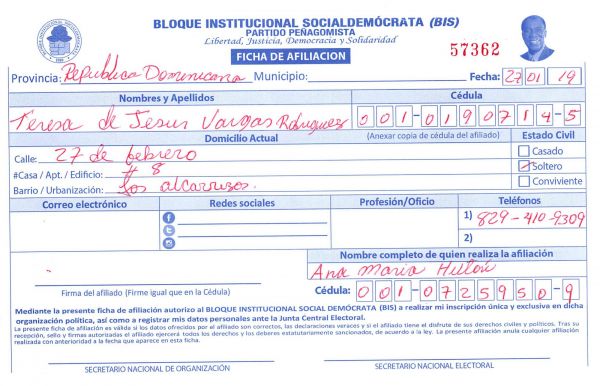 BLOQUE INSTITUCIONAL SOCIALDEMÓCRATA (BIS)
PARTIDO PEÑAGOMISTA
Libertad, Justicia, Democracia y Solidaridad
FICHA DE AFILIACION
57362
Provincia: Republica Dominicana Municipio: Fecha: 27 01 19
Nombres y Apellidos Cédula
Teresa de Jesus Vargas Rodriguez 001-0190714-5
Domicilio Actual (Anexar copia de cédula del afiliado) Estado Civil
Calle: 27 de febrero Casado
#Casa / Apt. / Edificio: # 8 Soltero
Barrio / Urbanización: Los alcarrizos. Conviviente
Correo electrónico Redes sociales Profesión/Oficio Teléfonos
1) 829-410-9309
2)
Nombre completo de quien realiza la afiliación
Ana Maria
Firma del afiliado (Firme igual que en la Cédula) Cédula: 001-0725950-9
Mediante la presente ficha de afiliación autorizo al BLOQUE INSTITUCIONAL SOCIAL DEMÓCRATA (BIS) a realizar mi inscripción única y exclusiva en dicha
organización política, así como a registrar mis datos personales ante la Junta Central Electoral.
La presente ficha de afiliación es válida si los datos ofrecidos por el afiliado son correctos, las declaraciones veraces y si el afiliado tiene el disfrute de sus derechos civiles y políticos. Tras su
recepción, sello y firmas autorizadas el afiliado ejercerá todos los derechos y los deberes estatutariamente sancionados, de acuerdo a la ley. La presente afiliación anula cualquier afiliación
realizada con anterioridad a la fecha que aparece en esta ficha.
SECRETARIO NACIONAL DE ORGANIZACIÓN SECRETARIO NACIONAL ELECTORAL